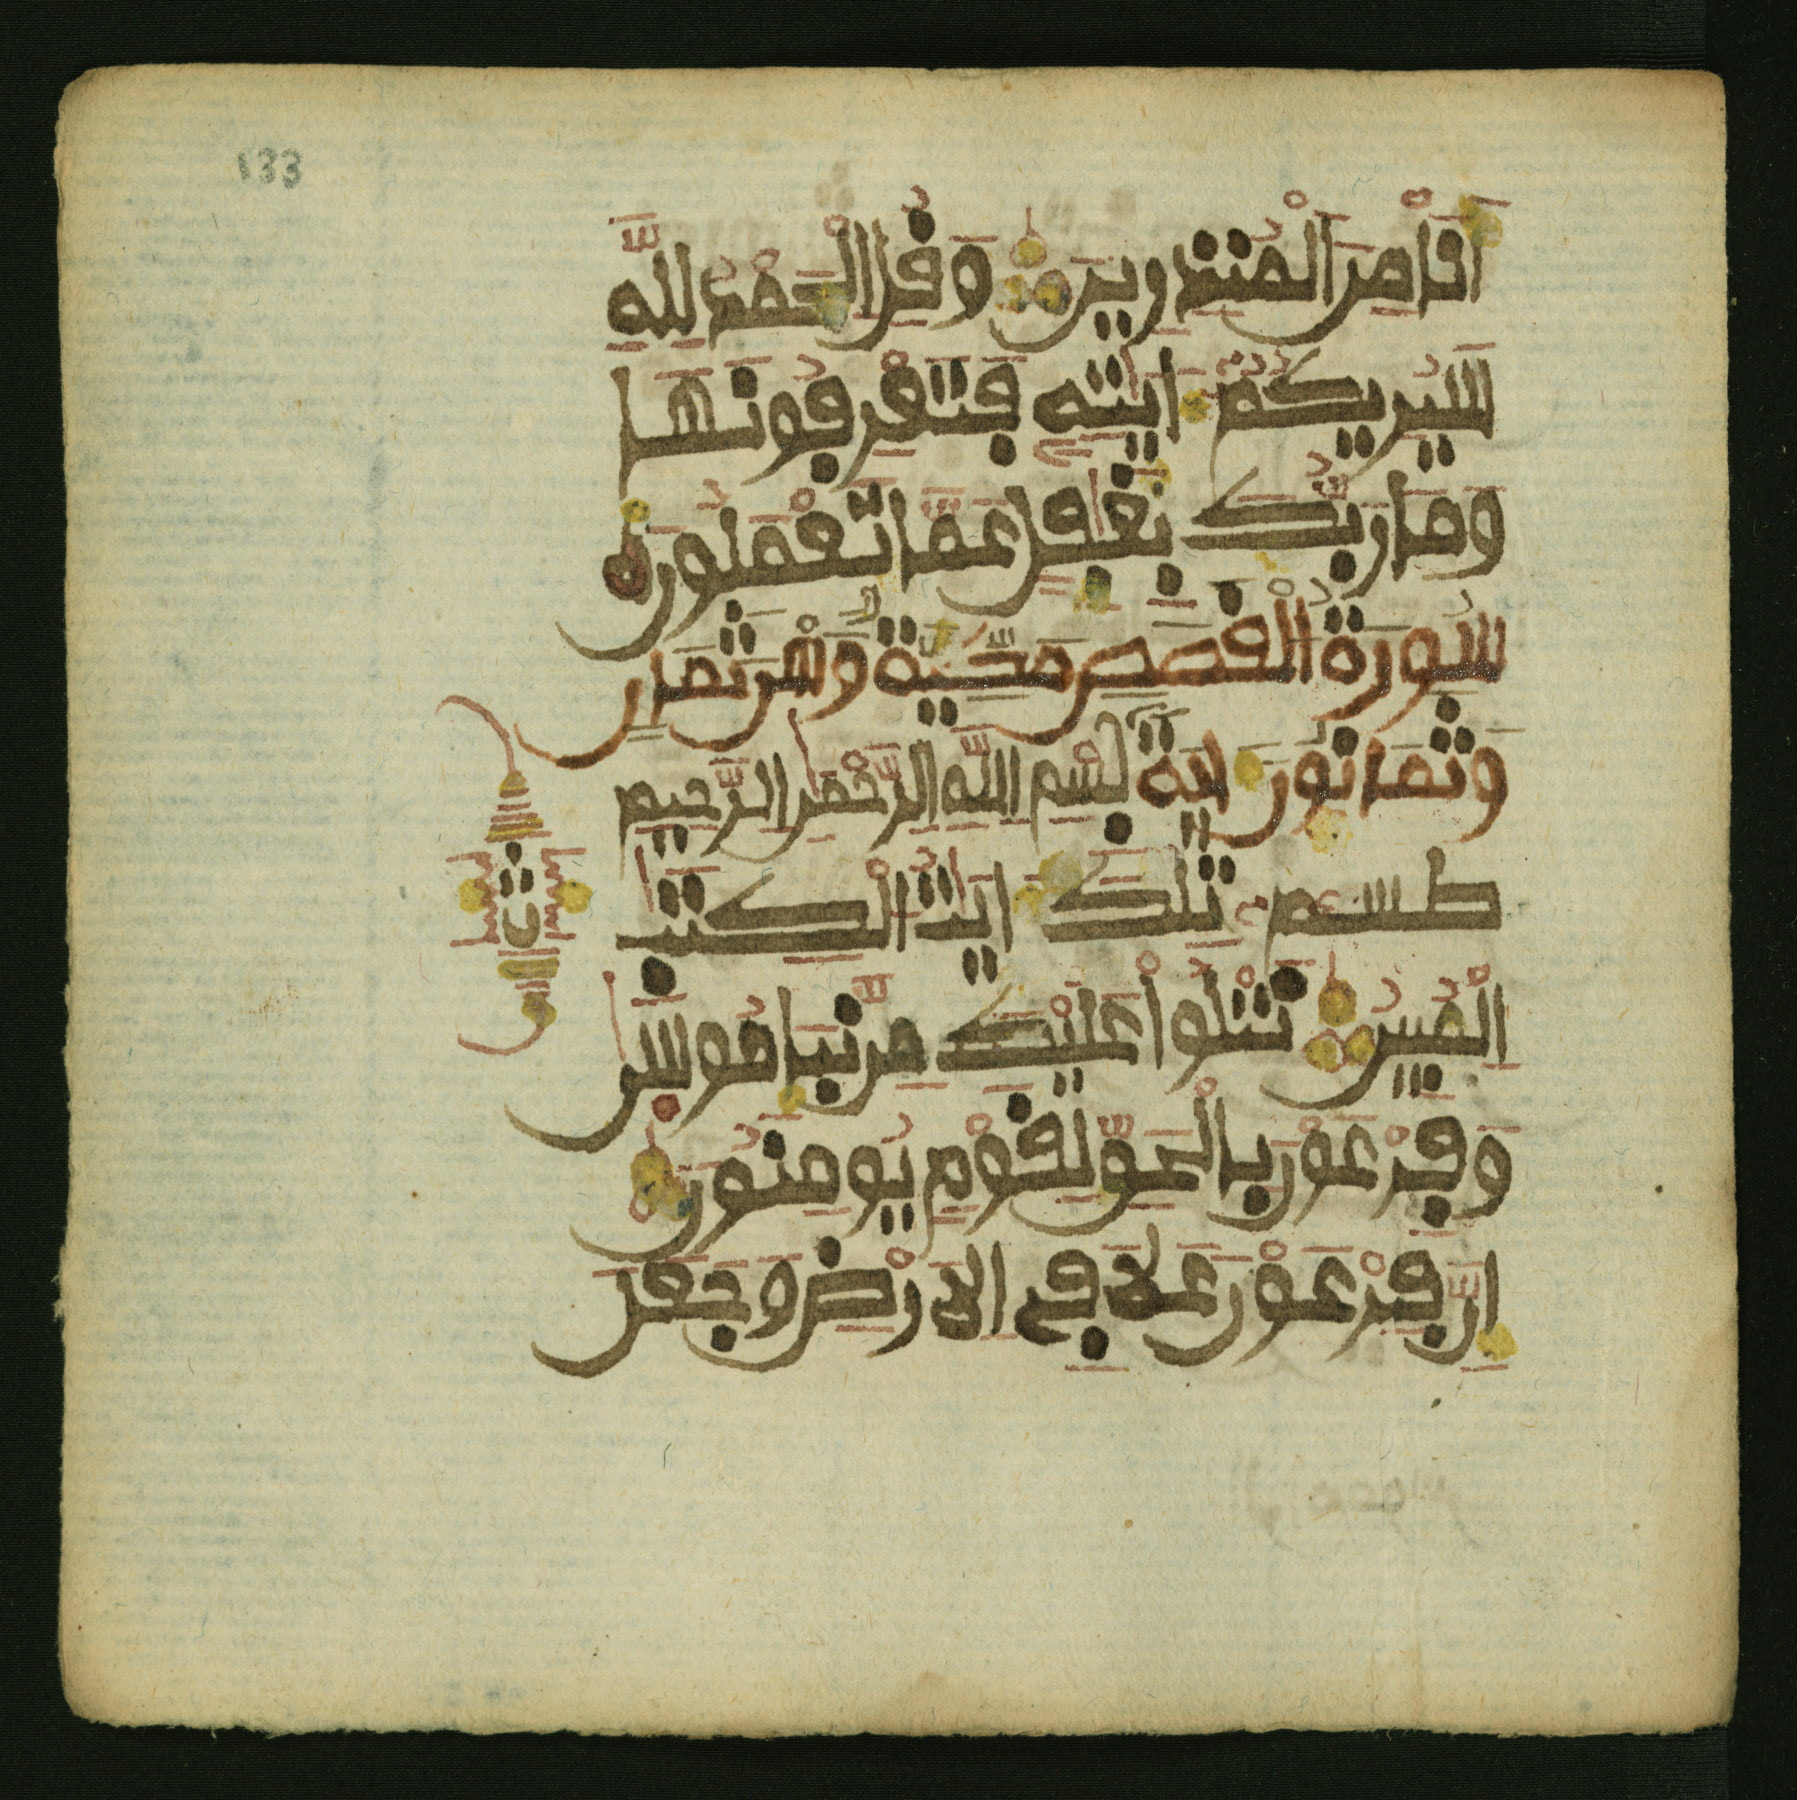 133
أنا من المنذرين وقل الحمد لله
سيريكم ءايته فتعرفونها
وما ربك بغفل عما تعملون
سورة القصص مكية وهى ثمان
وثمانون ءاية بسم الله الرحمن الرحيم
طسم تلك ءايت الكتب
المبين نتلوا عليك من نبإ موسى
وفرعون بالحق لقوم يومنون
إن فرعون علا في الارض وجعل